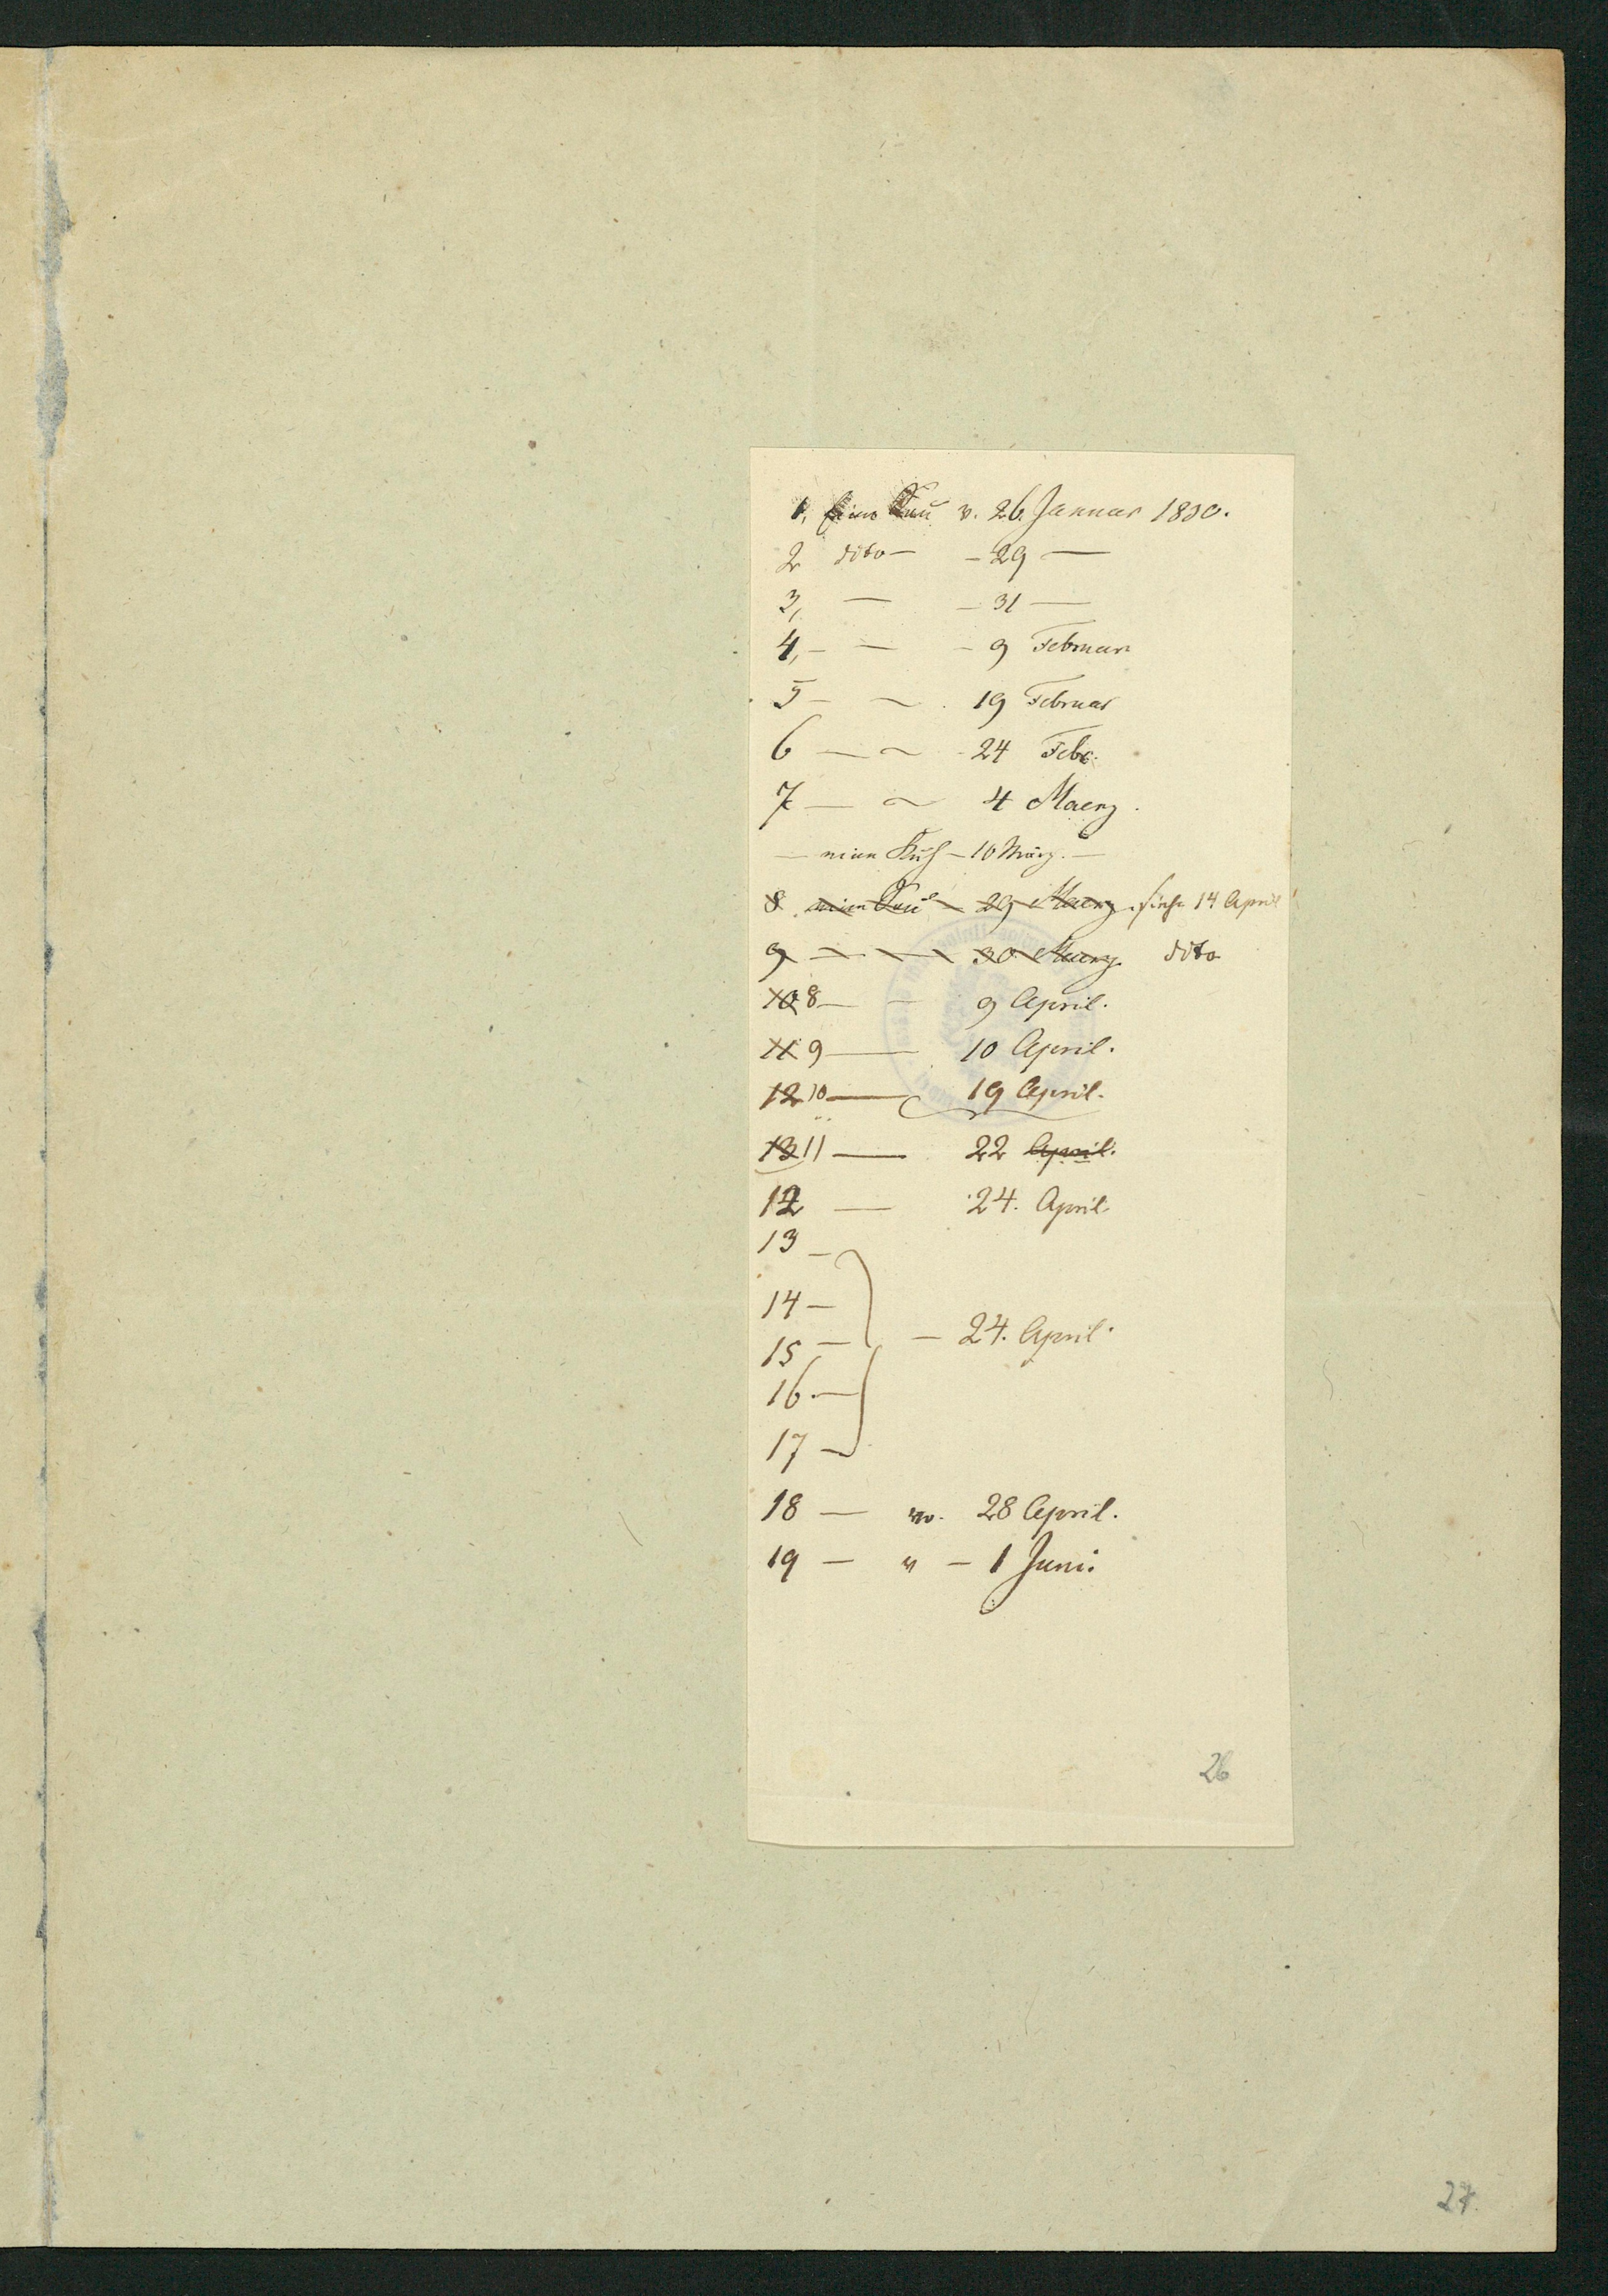 1, eine Kuh v. 26. Januar 1830.
2 dito — – 29 —
3, — – 31 —
4, – — – 9 Februar
5 – ~ . 19 Februar
6 — ~ - 24 Febr.
7 — ~ 4 Maerz.
— eine Kuh – 10 März. —
8 eine Kuh – 29 Maerz. siehe 14 April
9 – – – 30 Maerz. dito
10 8 — – 9 April.
11 9 — 10 April.
12 10 — 19 April.
13 11 — 22 April.
12 — 24. April.
13 –
14 –
15 – – 24. April.
16. —
17 –
18 — v. 28 April.
19 – v – 1 Juni.
26
27.